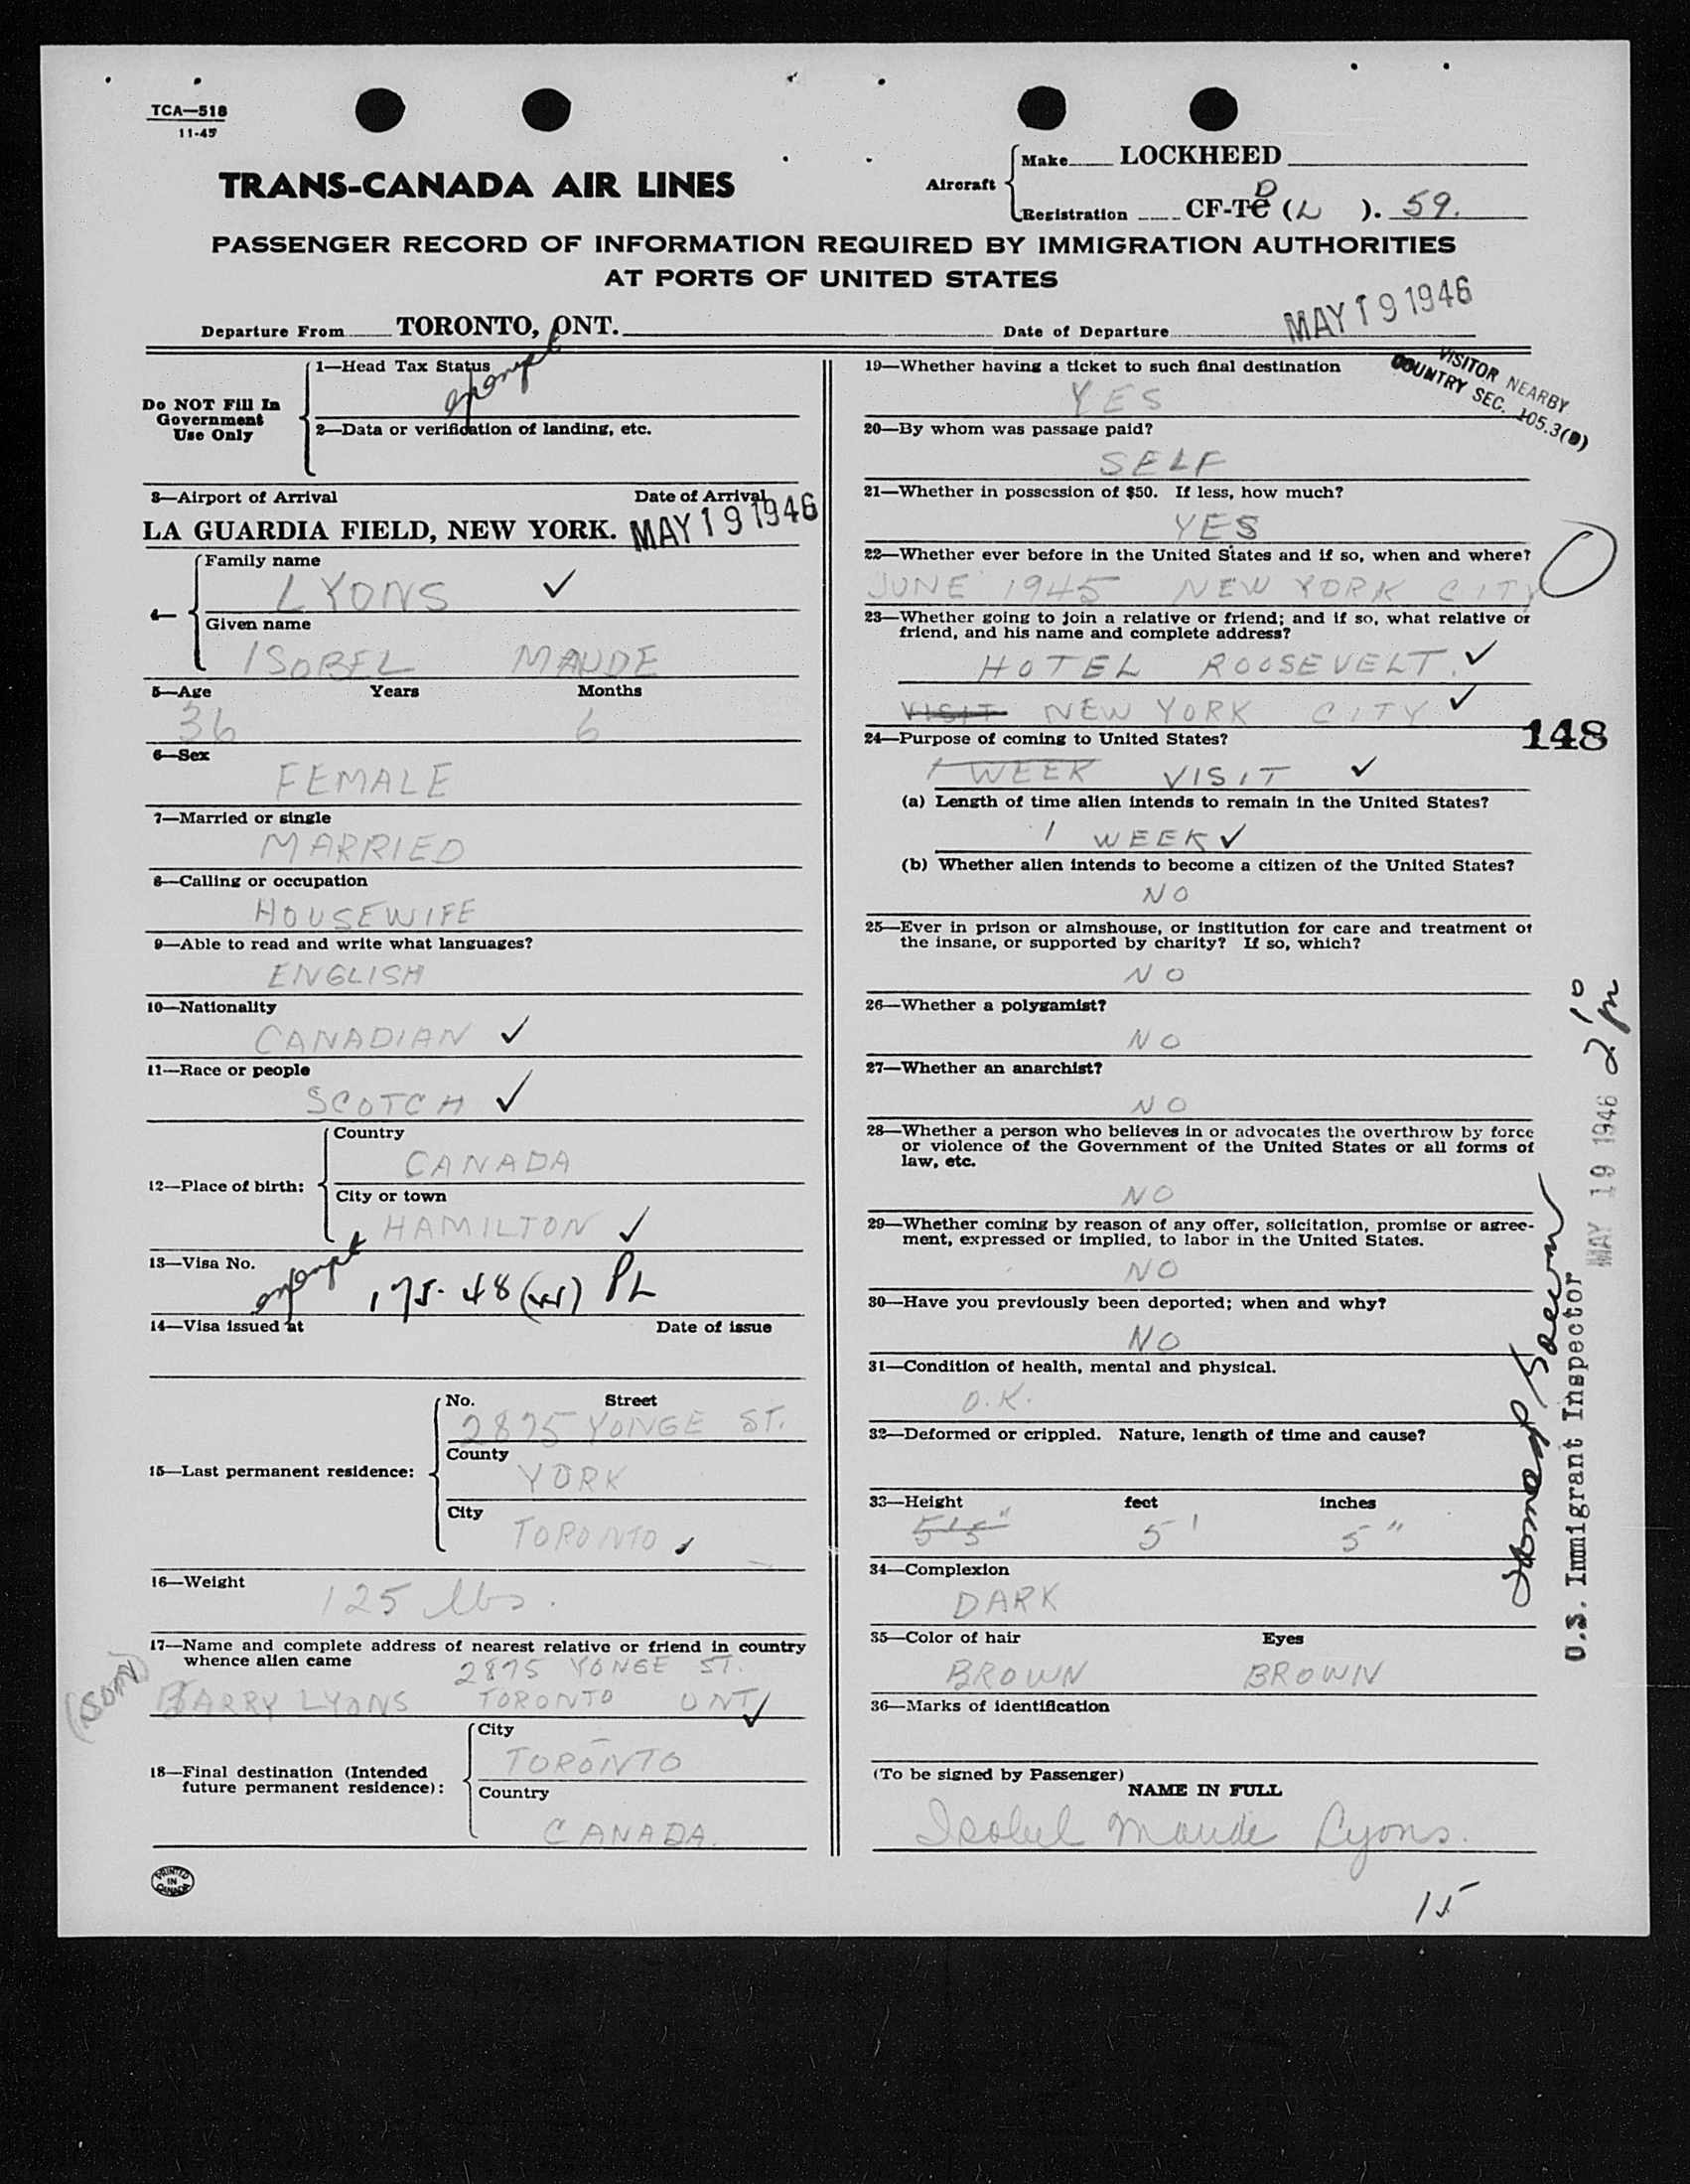 TCA—518
11-45
TRANS-CANADA AIR LINES
Aircraft
Make LOCKHEED
Registration CF-TC D (L ). 59.
PASSENGER RECORD OF INFORMATION REQUIRED BY IMMIGRATION AUTHORITIES
AT PORTS OF UNITED STATES
Departure From TORONTO, ONT.
Date of Departure MAY 19 1946
Do NOT Fill In
Government
Use Only
1—Head Tax Status exempt
2—Data or verification of landing, etc.
3—Airport of Arrival Date of Arrival
LA GUARDIA FIELD, NEW YORK. MAY 19 1946
4—
Family name
LYONS ✓
Given name
ISOBEL MAUDE
5—Age Years Months
36 6
6—Sex
FEMALE
7—Married or single
MARRIED
8—Calling or occupation
HOUSEWIFE
9—Able to read and write what languages?
ENGLISH
10—Nationality
CANADIAN ✓
11—Race or people
SCOTCH ✓
12—Place of birth:
Country
CANADA
City or town
HAMILTON ✓
13—Visa No.
exempt 175.48 PL
14—Visa issued at Date of issue
15—Last permanent residence:
No. Street
2875 YONGE ST.
County
YORK
City
TORONTO
16—Weight
125 lbs.
17—Name and complete address of nearest relative or friend in country
whence alien came
2875 YONGE ST.
(SON) BARRY LYONS TORONTO ONT ✓
18—Final destination (Intended
future permanent residence):
City
TORONTO
Country
CANADA.
PRINTED
IN
CANADA
19—Whether having a ticket to such final destination
YES
VISITOR NEARBY
COUNTRY SEC. 105.3(B)
20—By whom was passage paid?
SELF
21—Whether in possession of $50. If less, how much?
YES
22—Whether ever before in the United States and if so, when and where?
JUNE 1945 NEW YORK CITY
23—Whether going to join a relative or friend; and if so, what relative or
friend, and his name and complete address?
HOTEL ROOSEVELT. ✓
VISIT NEW YORK CITY ✓
148
24—Purpose of coming to United States?
1 WEEK VISIT ✓
(a) Length of time alien intends to remain in the United States?
1 WEEK ✓
(b) Whether alien intends to become a citizen of the United States?
NO
25—Ever in prison or almshouse, or institution for care and treatment of
the insane, or supported by charity? If so, which?
NO
26—Whether a polygamist?
NO
27—Whether an anarchist?
NO
28—Whether a person who believes in or advocates the overthrow by force
or violence of the Government of the United States or all forms of
law, etc.
NO
29—Whether coming by reason of any offer, solicitation, promise or agree-
ment, expressed or implied, to labor in the United States.
NO
30—Have you previously been deported; when and why?
NO
31—Condition of health, mental and physical.
O.K.
32—Deformed or crippled. Nature, length of time and cause?
33—Height feet inches
5'5" 5' 5"
34—Complexion
DARK
35—Color of hair Eyes
BROWN BROWN
36—Marks of identification
(To be signed by Passenger)
NAME IN FULL
Isobel Maude Lyons.
15
U.S. Immigrant Inspector
MAY 19 1946 2 10 pm